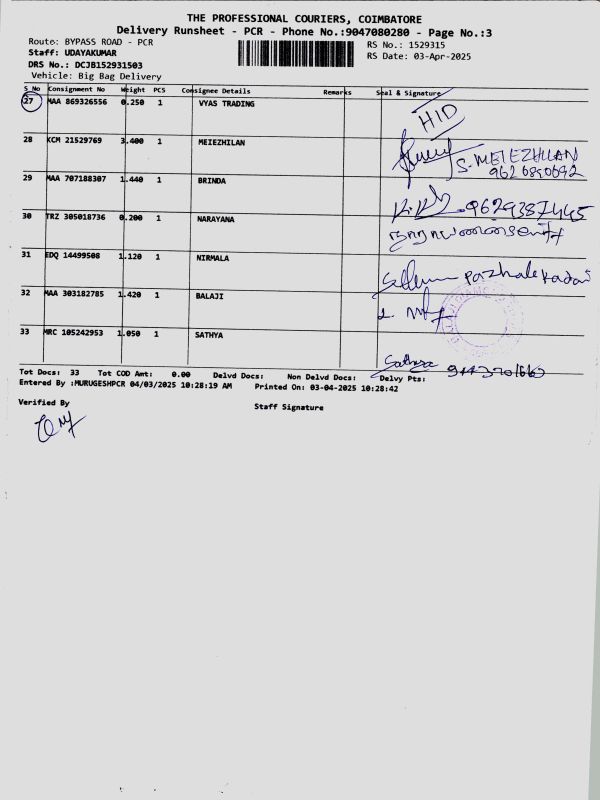 THE PROFESSIONAL COURIERS, COIMBATORE
Delivery Runsheet - PCR - Phone No.:9047080280 - Page No.:3
Route: BYPASS ROAD - PCR
RS No.: 1529315
Staff: UDAYAKUMAR
RS Date: 03-Apr-2025
DRS No.: DCJB152931503
Vehicle: Big Bag Delivery
S_No Consignment No Weight PCS Consignee Details Remarks Seal & Signature
27 MAA 869326556 0.250 1 VYAS TRADING
HID
28 KCM 21529769 3.400 1 MEIEZHILAN
S. MEIEZHILAN
9626890692
29 MAA 707188307 1.440 1 BRINDA
9629387445
30 TRZ 305018736 0.200 1 NARAYANA
31 EDQ 14499508 1.120 1 NIRMALA
32 MAA 303182785 1.420 1 BALAJI
33 MRC 105242953 1.050 1 SATHYA
Sathya
Tot Docs: 33 Tot COD Amt: 0.00 Delvd Docs: Non Delvd Docs: Delvy Pts:
Entered By :MURUGESHPCR 04/03/2025 10:28:19 AM Printed On: 03-04-2025 10:28:42
Verified By
Staff Signature